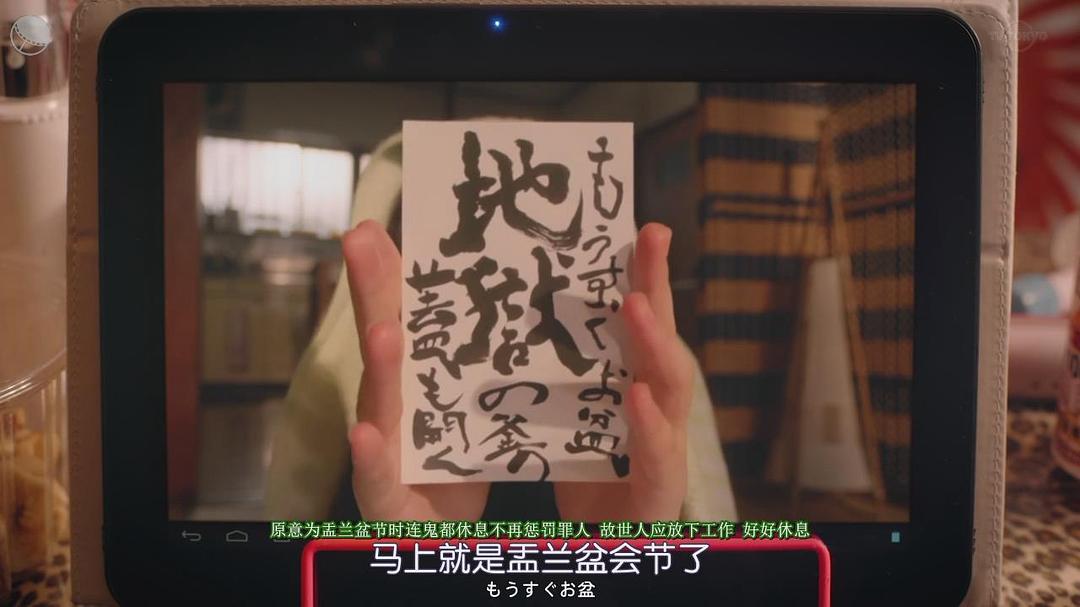 TV TOKYO
もうすぐお盆、
地獄の釜の
蓋も開く
原意为盂兰盆节时连鬼都休息不再惩罚罪人 故世人应放下工作 好好休息
马上就是盂兰盆会节了
もうすぐお盆